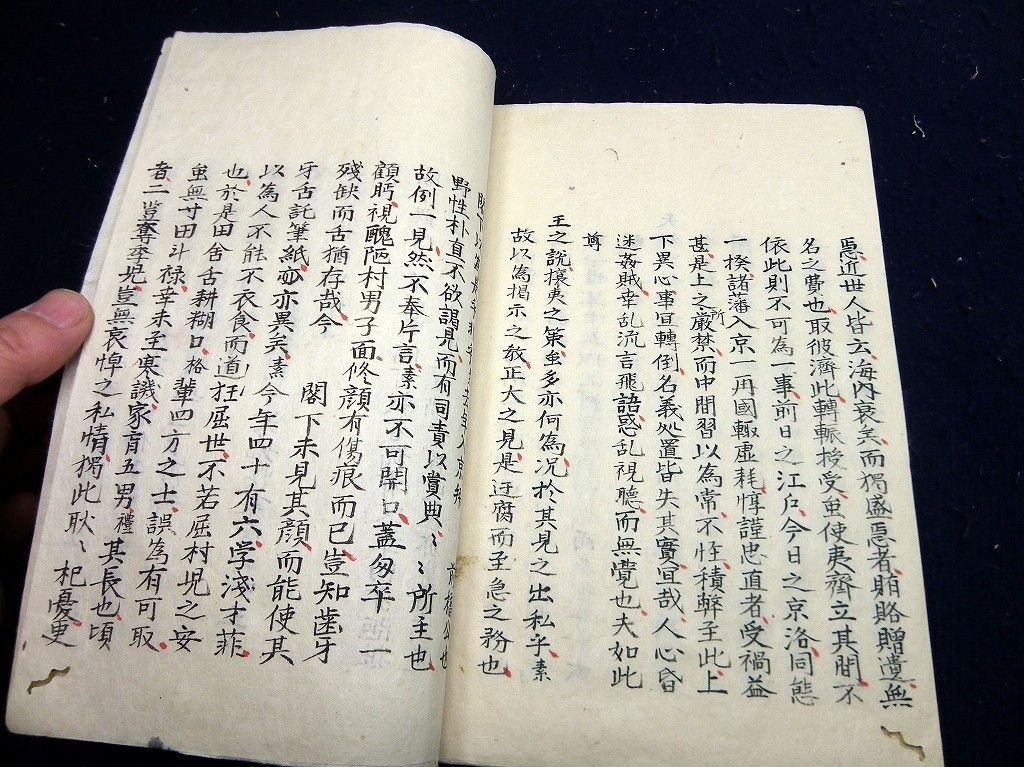 焉近世人皆云海内衰矣而獨盛焉者賄賂贈遺無
名之費也取彼濟此轉賑授受虽使夷齊立其間不
依此則不可為一事前日之江戶今日之京洛同態
一揆諸藩入京一再國輙虚耗惇謹忠直者受禍益
甚是上之所嚴禁而中間習以為常不恠積弊至此上
下異心事冝轉倒名義処置皆失其實冝哉人心昏
迷姦賊幸乱流言飛語惑乱視聴而無覺也夫如此
尊
王之説攘夷之策虽多亦何為况於其見之出私乎素
故以為掲示之敎正大之見是迂腐而至急之務也
野性朴直不欲謁見而有司責以賞典〻〻所主也
故例一見然不奉片言素亦不可開口蓋匆卒一
顧眄視醜陋村男子面修顔有傷痕而已豈知齒牙
残缺而舌猶存哉今 閣下未見其顔而能使其
牙舌託筆紙而亦異矣素今年四十有六学淺才菲
以為人不能不衣食而道枉屈世不若屈村児之安
也於是田舍舌耕糊口格輩四方之士誤為有可取
虽無寸田斗禄幸未至寒譏家育五男禮其長也頃
者二豎奪季児豈無哀悼之私情獨此耿〻杞憂更